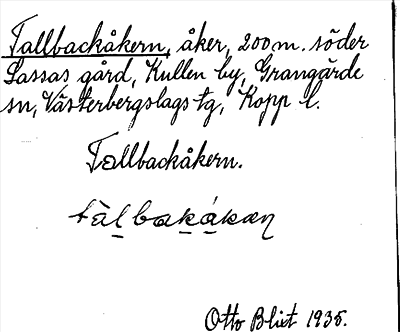 Tallbackåkern, åker, 200 m. söder
Lassas gård, Kullen by, Grangärde
sn, Västerbergslags tg, Kopp l.
Tallbackåkern.
tàlbakákaṇ
Otto Blixt 1935.